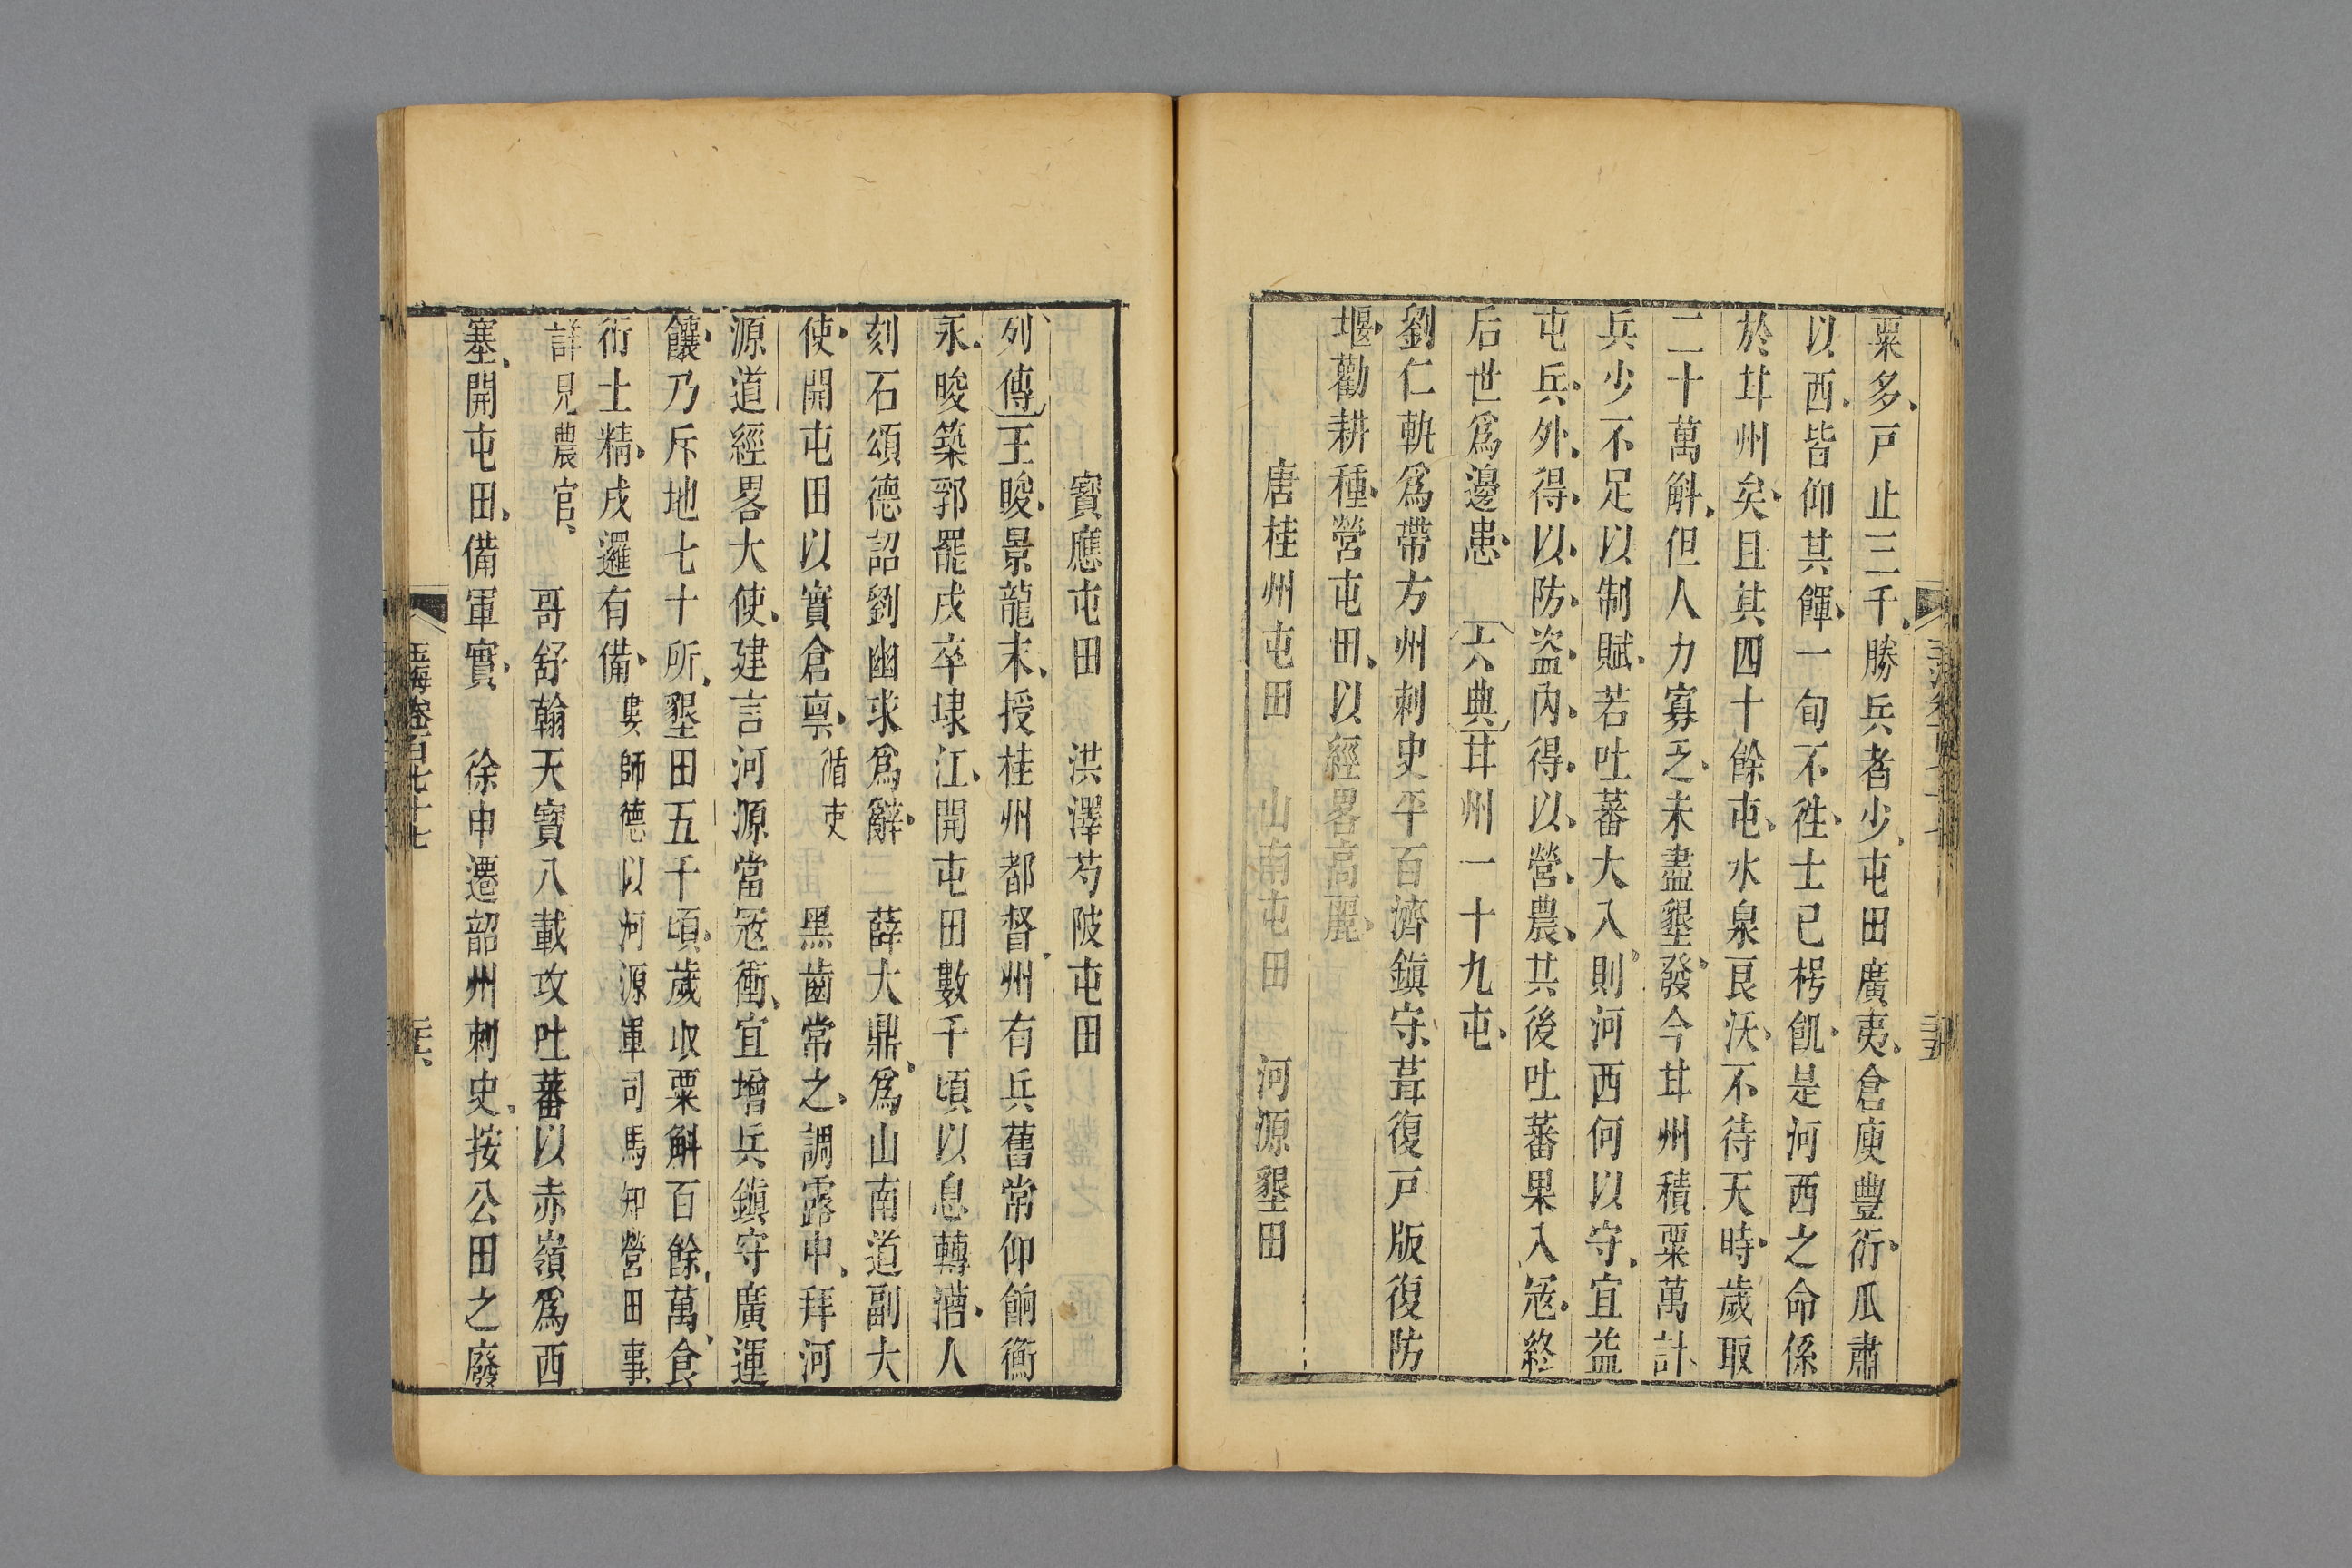 粟多戸止三千勝兵者少屯田廣夷倉庾豐衍瓜肅
以西皆仰其餫一旬不徃士已枵飢是河西之命係
於甘州矣且其四十餘屯水泉良沃不待天時歲取
二十萬斛但人力寡乏未盡墾發今甘州積粟萬計
兵少不足以制賊若吐蕃大入則河西何以守宜益
屯兵外得以防盜内得以營農其後吐蕃果入宼終
后世爲邊患　六典甘州一十九屯
劉仁軌爲帶方州刺史平百濟鎭守葺復戸版復防
堰勸耕種營屯田以經畧高麗
唐桂州屯田　山南屯田　河源墾田
寳應屯田　洪澤芍陂屯田
列傳王晙景龍末授桂州都督州有兵舊常仰餉衡
永晙築郛罷戍卒埭江開屯田數千頃以息轉漕人
刻石頌德詔劉幽求爲辭　薛大鼎爲山南道副大
使開屯田以實倉禀循吏　黑齒常之調露中拜河
源道經畧大使建言河源當宼衝宜增兵鎭守廣運
饟乃斥地七十所墾田五千頃歲收粟斛百餘萬食
衎士精戍邏有備婁師德以河源軍司馬知營田事
詳見農官　哥舒翰天寳八載攻吐蕃以赤嶺爲西
塞開屯田備軍實　徐申遷韶州刺史按公田之廢
玉海卷百七十七